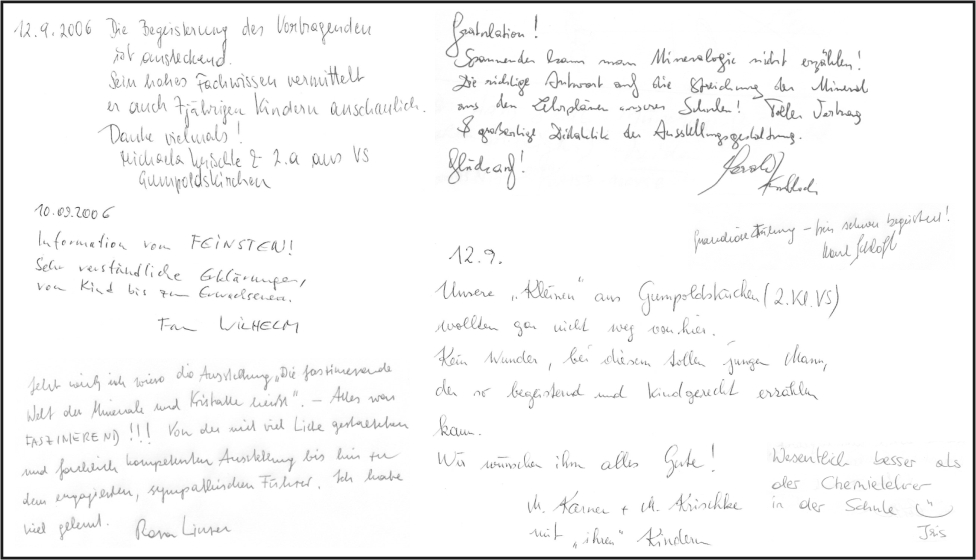 12.9.2006 Die Begeisterung des Vortragenden
ist ansteckend.
Sein hohes Fachwissen vermittelt
er auch 7jährigen Kindern anschaulich.
Danke vielmals!
Michaela & 2.a aus VS
Gumpoldskirchen
10.09.2006
Information vom FEINSTEN!!
Sehr verständliche Erklärungen,
vom Kind bis zum Erwachsenen.
Fam WILHELM
Jetzt weiß ich wieso die Ausstellung „Die faszinierende
Welt der Minerale und Kristalle heißt“. – Alles war
FASZINIEREND!!! Von der mit viel Liebe gestalteten
und fachlich kompetenten Ausstellung bis hin zu
dem engagierten, sympathischen Führer. Ich habe
viel gelernt.
Gratulation!
Spannender kann man Mineralogie nicht erzählen!
Die richtige Antwort auf die Streichung der Mineral
aus den Lehrplänen unserer Schulen! Toller Vortrag
& großartige Didaktik der Ausstellungsgestaltung.
Glückauf!
Grandiose Führung – bin schwer begeistert!
12.9.
Unsere „Kleinen“ aus Gumpoldskirchen (2.Kl.VS)
wollten gar nicht weg von hier.
Kein Wunder, bei diesem tollen jungen Mann,
der so begeisternd und kindgerecht erzählen
kann.
Wir wünschen ihm alles Gute!
M. Karner + M. Krischke
mit „ihren“ Kindern
Wesentlich besser als
der Chemielehrer
in der Schule